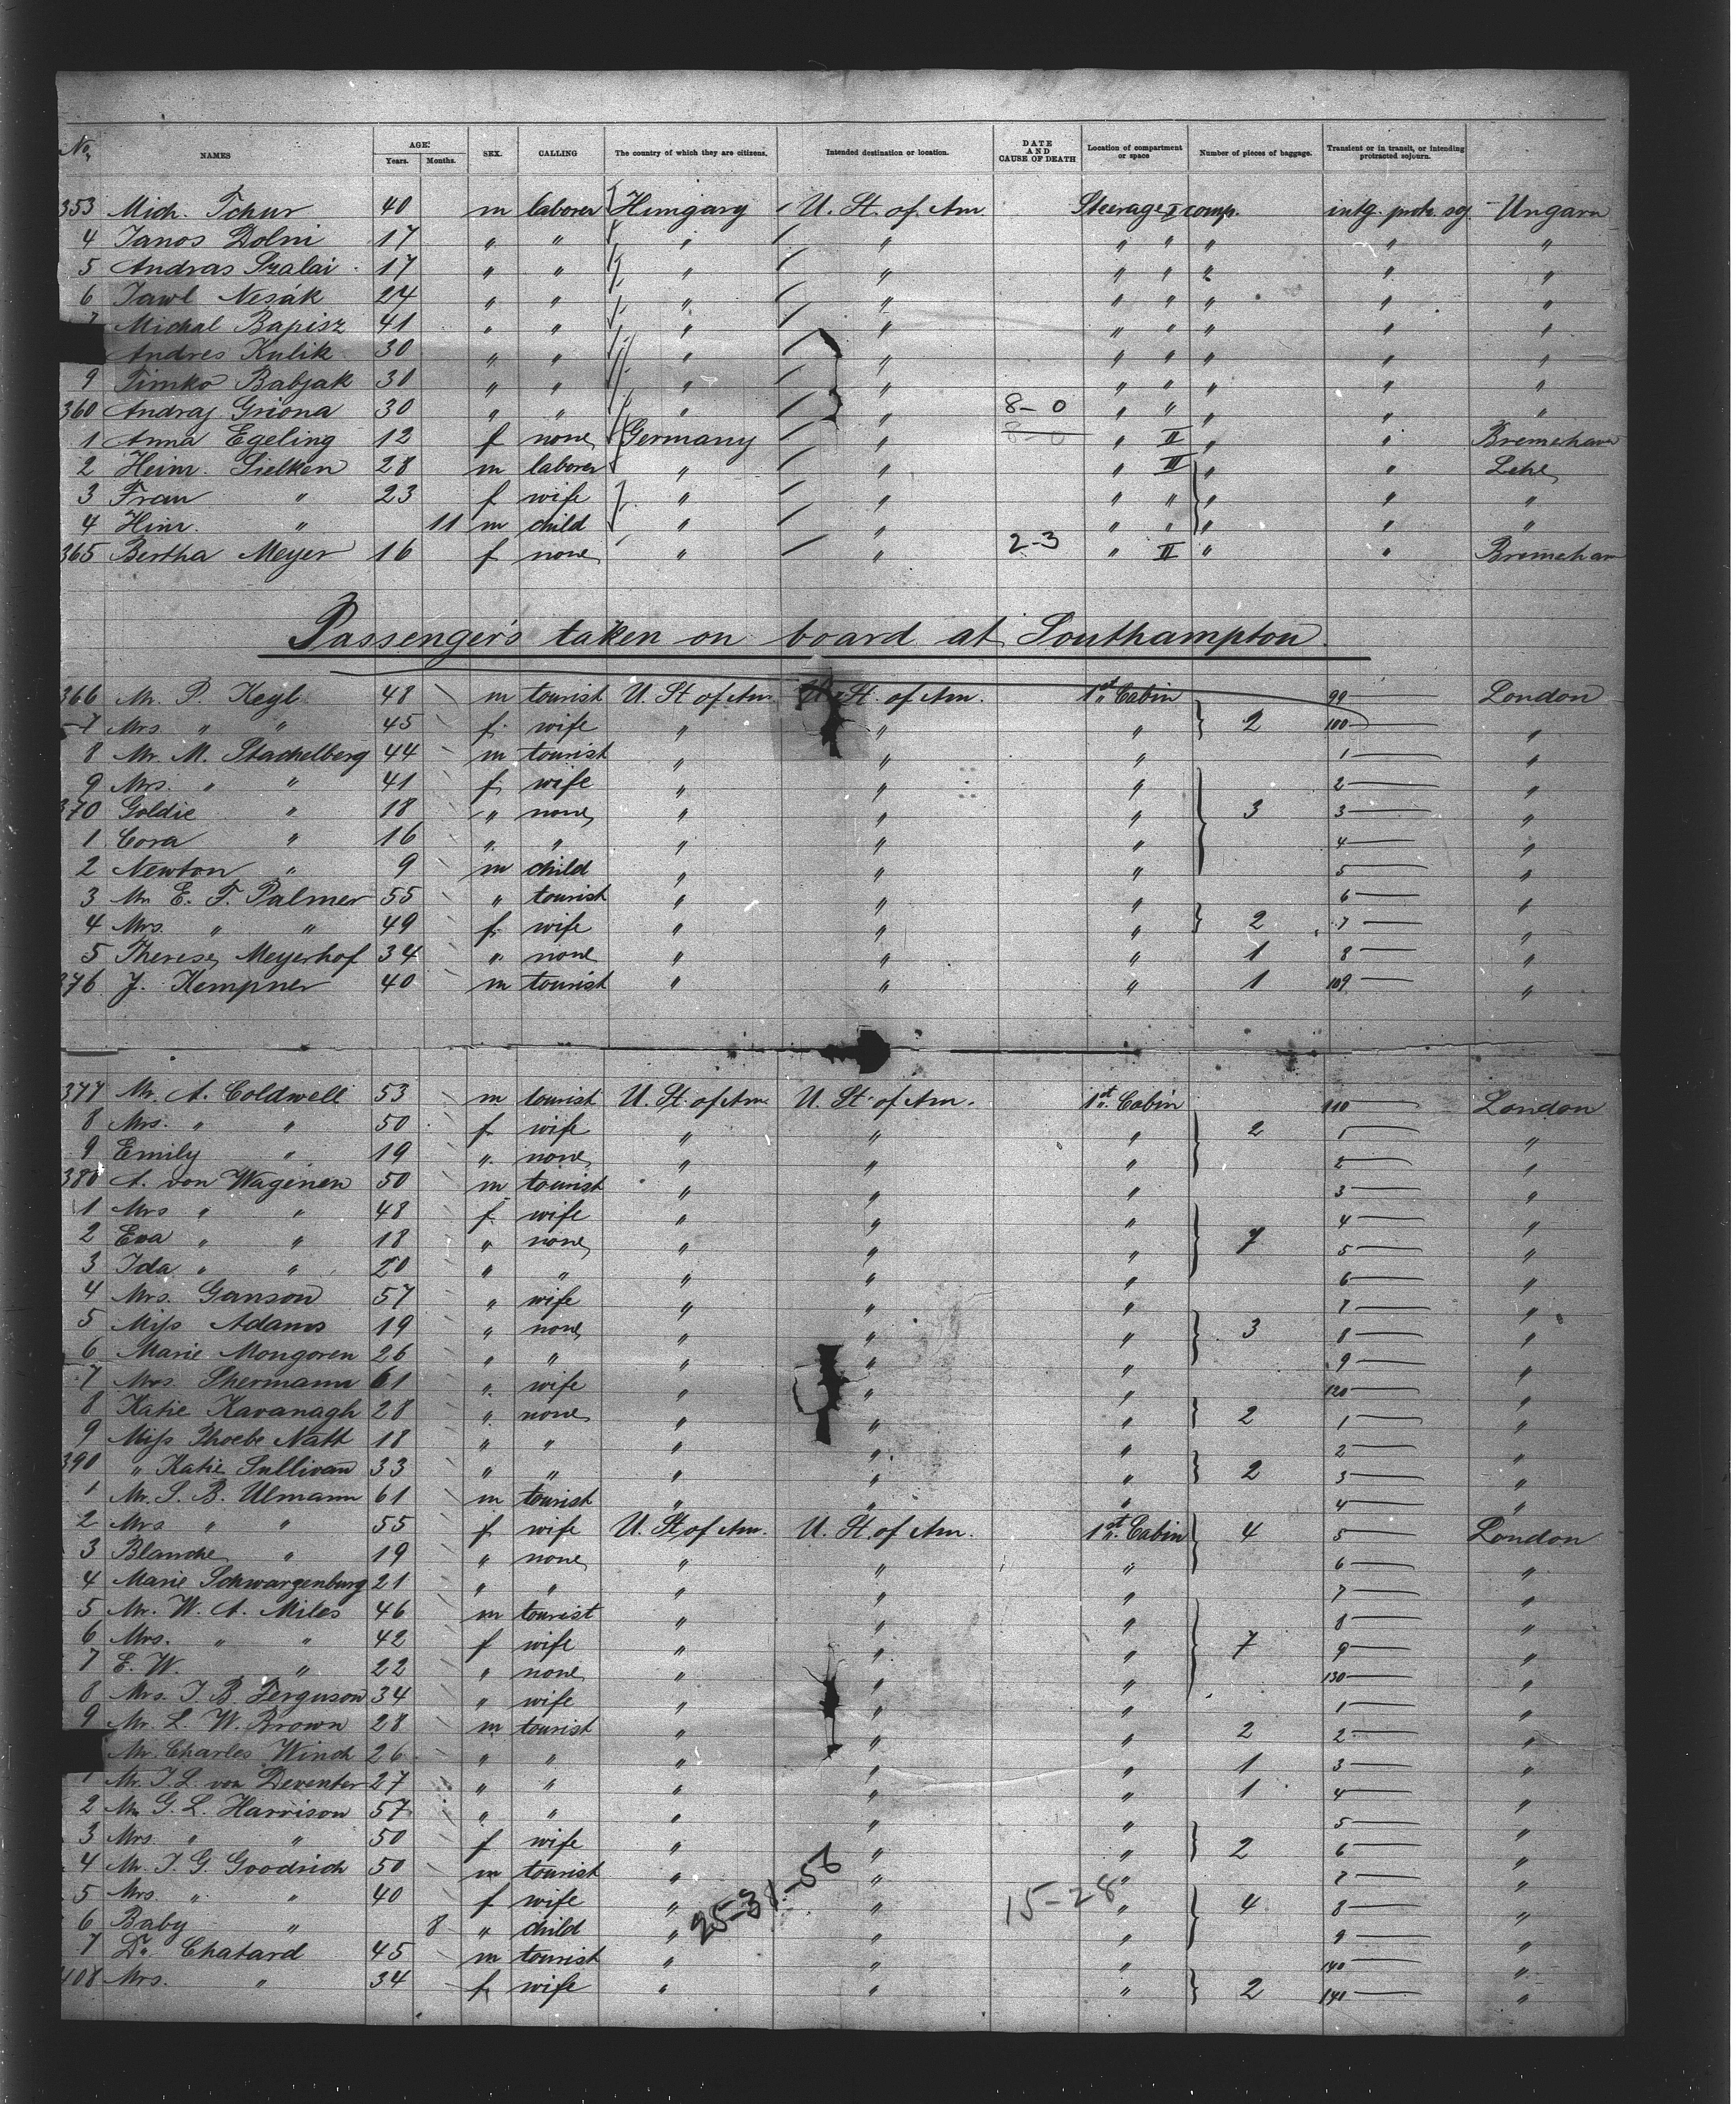 No. NAMES AGE: Years. Months. SEX. CALLING The country of which they are citizens. Intended destination or location. DATE AND CAUSE OF DEATH Location of compartment or space Number of pieces of baggage. Transient or in transit, or intending protracted sojourn.
353 Mich. Tchur 40 m laborer Hungary U. St. of Am Steerage I comp. intg. protr. soj. Ungarn
4 Janos Dolni 17 " " " " " " " " "
5 Andras Szalai 17 " " " " " " " " "
6 Pawl Nesák 24 " " " " " " " " "
7 Michal Bapisz 41 " " " " " " " " "
Andres Kulik 30 " " " " " " " " "
9 Timko Babjak 30 " " " " " " " " "
360 Andraj Griona 30 " " " " 8-0 " " " "
1 Anna Egeling 12 f none Germany " 8-0 " II " " Bremerhaven
2 Heinr. Sielken 28 m laborer " " " III " " Lehe
3 Frau " 23 f wife " " " " " " "
4 Hinr. " 11 m child " " " " " " "
365 Bertha Meyer 16 f none " " 2-3 " II " " Bremerhaven
Passengers taken on board at Southampton.
366 Mr. P. Kegl 48 m tourist U. St of Am U. St. of Am. 1st Cabin 99 London
7 Mrs " " 45 f. wife " " " 2 100 "
8 Mr. M. Stachelberg 44 m tourist " " " 1 "
9 Mrs. " " 41 f. wife " " " 2 "
370 Goldie " 18 " none " " " 3 3 "
1 Cora " 16 " " " " " 4 "
2 Newton " 9 m child " " " 5 "
3 Mr. E. F. Palmer 55 " tourist " " " 6 "
4 Mrs. " " 49 f. wife " " " 2 7 "
5 Therese Meyerhof 34 " none " " " 1 8 "
376 J. Kempner 40 m tourist " " " 1 109 "
377 Mr. A. Coldwell 53 m tourist U. St. of Am. U. St. of Am. 1st Cabin 110 London
8 Mrs. " " 50 f wife " " " 2 1 "
9 Emily " 19 " none " " " 2 "
380 A. von Wagenen 50 m tourist " " " 3 "
1 Mrs " " 48 f wife " " " 4 "
2 Eva " " 18 " none " " " 7 5 "
3 Ida " " 20 " " " " " 6 "
4 Mrs. Ganson 57 " wife " " " 7 "
5 Miss Adams 19 " none " " " 3 8 "
6 Marie Mongoren 26 " " " " " 9 "
7 Mrs Shermann 61 " wife " " " 120 "
8 Katie Kavanagh 28 " none " " " 2 1 "
9 Miss Phoebe Natt 18 " " " " " 2 "
390 " Katie Sullivan 33 " " " " " 2 3 "
1 Mr. S. B. Ulmann 61 m tourist " " " 4 "
2 Mrs " " 55 f wife U. St of Am. U. St. of Am. 1st Cabin 4 5 London
3 Blanche " 19 " none " " " 6 "
4 Marie Schwarzenburg 21 " " " " " 7 "
5 Mr. W. A. Miles 46 m tourist " " " 8 "
6 Mrs. " " 42 f wife " " " 7 9 "
7 E. W. " 22 " none " " " 130 "
8 Mrs. J. B. Ferguson 34 " wife " " " 1 "
9 Mr. L. W. Brown 28 m tourist " " " 2 2 "
Mr. Charles Winch 26 " " " " " 1 3 "
1 Mr. J. L. von Deventer 27 " " " " " 1 4 "
2 Mr. G. L. Harrison 57 " " " " " 5 "
3 Mrs. " " 50 f wife " " " 2 6 "
4 Mr. J. G. Goodrich 50 m tourist " " " 7 "
5 Mrs. " " 40 f wife " " " 4 8 "
6 Baby " 8 " child " " " 9 "
7 Dr. Chatard 45 m tourist " " " 140 "
408 Mrs. " 34 f. wife " " " 2 141 "
25-31-56
15-28